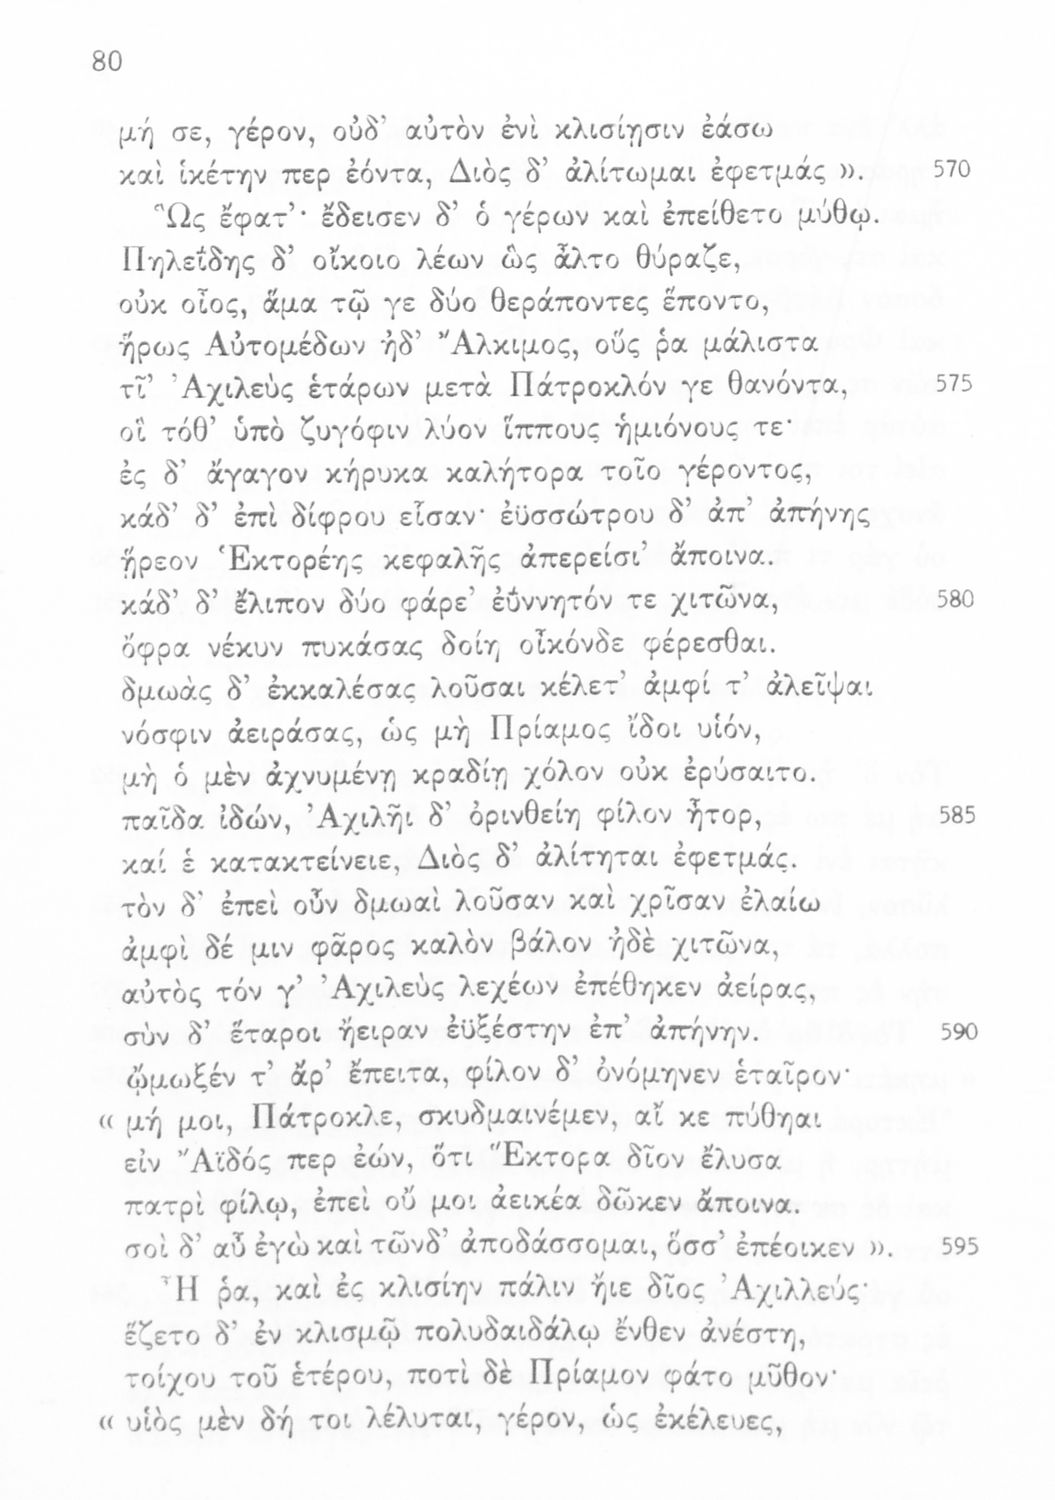 80
μή σε, γέρον, οὐδ’ αὐτὸν ἐνὶ κλισίῃσιν ἐάσω
καὶ ἱκέτην περ ἐόντα, Διὸς δ’ ἀλίτωμαι ἐφετμάς ». 570
Ὣς ἔφατ’· ἔδεισεν δ’ ὁ γέρων καὶ ἐπείθετο μύθῳ.
Πηλεΐδης δ’ οἴκοιο λέων ὣς ἆλτο θύραζε,
οὐκ οἶος, ἅμα τῷ γε δύο θεράποντες ἕποντο,
ἥρως Αὐτομέδων ἠδ’ Ἄλκιμος, οὕς ῥα μάλιστα
τῖ’ Ἀχιλεὺς ἑτάρων μετὰ Πάτροκλόν γε θανόντα, 575
οἳ τόθ’ ὑπὸ ζυγόφιν λύον ἵππους ἡμιόνους τε·
ἐς δ’ ἄγαγον κήρυκα καλήτορα τοῖο γέροντος,
κάδ’ δ’ ἐπὶ δίφρου εἷσαν· ἐϋσσώτρου δ’ ἀπ’ ἀπήνης
ᾕρεον Ἑκτορέης κεφαλῆς ἀπερείσι’ ἄποινα.
κάδ’ δ’ ἔλιπον δύο φάρε’ ἐΰννητόν τε χιτῶνα, 580
ὄφρα νέκυν πυκάσας δοίη οἶκόνδε φέρεσθαι.
δμωὰς δ’ ἐκκαλέσας λοῦσαι κέλετ’ ἀμφί τ’ ἀλεῖψαι
νόσφιν ἀειράσας, ὡς μὴ Πρίαμος ἴδοι υἱόν,
μὴ ὁ μὲν ἀχνυμένῃ κραδίῃ χόλον οὐκ ἐρύσαιτο.
παῖδα ἰδών, Ἀχιλῆϊ δ’ ὀρινθείη φίλον ἦτορ, 585
καί ἑ κατακτείνειε, Διὸς δ’ ἀλίτηται ἐφετμάς.
τὸν δ’ ἐπεὶ οὖν δμωαὶ λοῦσαν καὶ χρῖσαν ἐλαίω
ἀμφὶ δέ μιν φᾶρος καλὸν βάλον ἠδὲ χιτῶνα,
αὐτὸς τόν γ’ Ἀχιλεὺς λεχέων ἐπέθηκεν ἀείρας,
σὺν δ’ ἕταροι ἤειραν ἐϋξέστην ἐπ’ ἀπήνην. 590
ᾤμωξέν τ’ ἄρ’ ἔπειτα, φίλον δ’ ὀνόμηνεν ἑταῖρον·
« μή μοι, Πάτροκλε, σκυδμαινέμεν, αἴ κε πύθηαι
εἰν Ἄϊδός περ ἐών, ὅτι Ἕκτορα δῖον ἔλυσα
πατρὶ φίλῳ, ἐπεὶ οὔ μοι ἀεικέα δῶκεν ἄποινα.
σοὶ δ’ αὖ ἐγὼ καὶ τῶνδ’ ἀποδάσσομαι, ὅσσ’ ἐπέοικεν ». 595
Ἦ ῥα, καὶ ἐς κλισίην πάλιν ἤιε δῖος Ἀχιλλεύς·
ἕζετο δ’ ἐν κλισμῷ πολυδαιδάλῳ ἔνθεν ἀνέστη,
τοίχου τοῦ ἑτέρου, ποτὶ δὲ Πρίαμον φάτο μῦθον·
« υἱὸς μὲν δή τοι λέλυται, γέρον, ὡς ἐκέλευες,